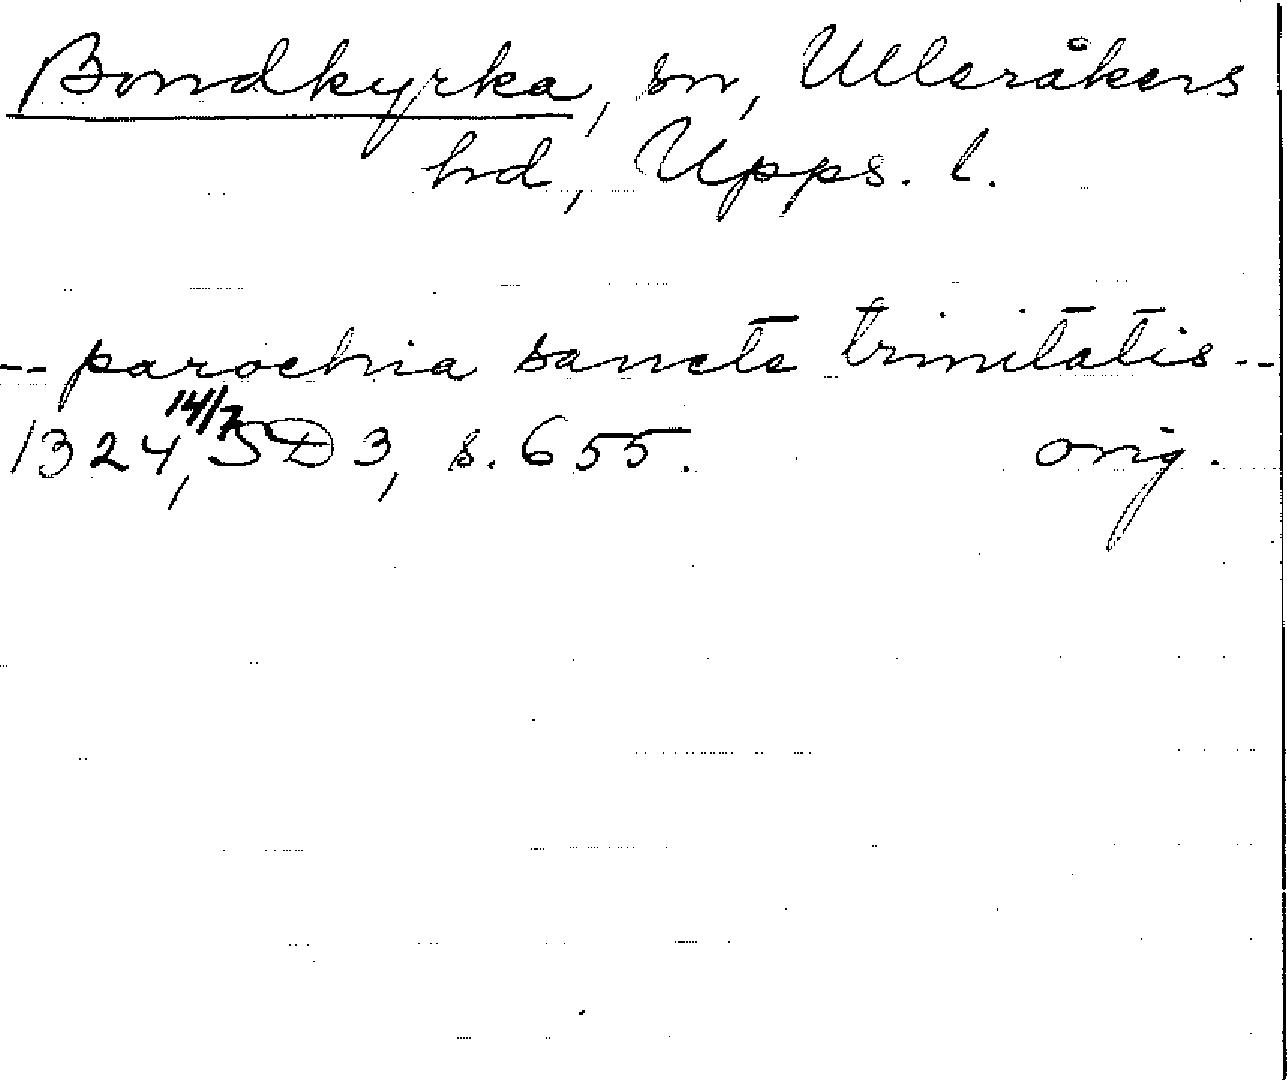 Bondkyrka, sn, Ulleråkers
hd, Upps. l.
-- parochia sancte trinitatis --
14/7
1324, SD 3, s. 655. orig.